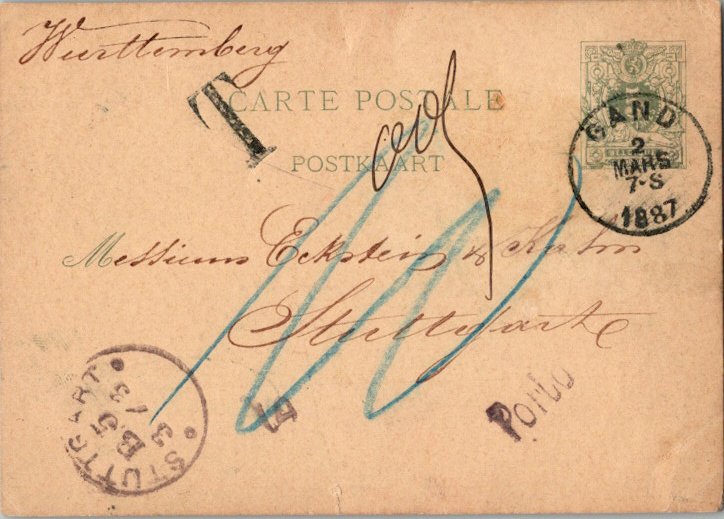 Württemberg
T
CARTE POSTALE
POSTKAART
GAND
2
MARS
7-S
1887
Messieurs Eckstein & Kahn
Stuttgart
STUTTGART
B.5
3/3
Porto